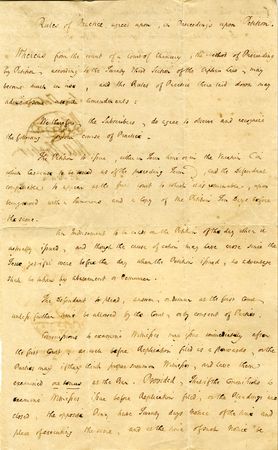 Rules of Practice agreed upon, in Proceedings upon Petition.
Whereas from the want of a Court of Chancery, the method of Proceeding
by Petition, according to the Twenty third Section of the Orphan Law, may
become much in use, and the Rules of Practice there laid down may
admit of some useful amendments:
We therefore, the Subscribers, do agree to observe and recognize
the following course of Practice.
The Petition to issue, either in Term time or in the Vacation (in
which last case to be tested as of the preceding Term) and the Defendant
compellable to appear at the first Court to which it is returnable, upon
being served with a Summons and a Copy of the Petition Ten Days before
the same.
An Indorsement to be made on the Petition of the day when it
actually issued, and though the cause of action may have arose since the
Term, yet if it were before the day when the Petition issued, no advantage
shall be taken by Abatement or Demurrer.
The Defendant to plead, answer, or demur at the first Court,
unless further time be allowed by the Court, or by consent of Parties.
Commissions to examine Witnesses may issue immediately after
the first Court as well before Replication filed as afterwards, or the
Parties may if they think proper summon Witnesses, and have them
examined at the Bar. Provided, That if the Commissions to
examine Witnesses issue before Replication filed, or the Pleadings are
closed, the opposite Party have Twenty days Notice of the time and
place of executing the same, and at the time of such Notice be